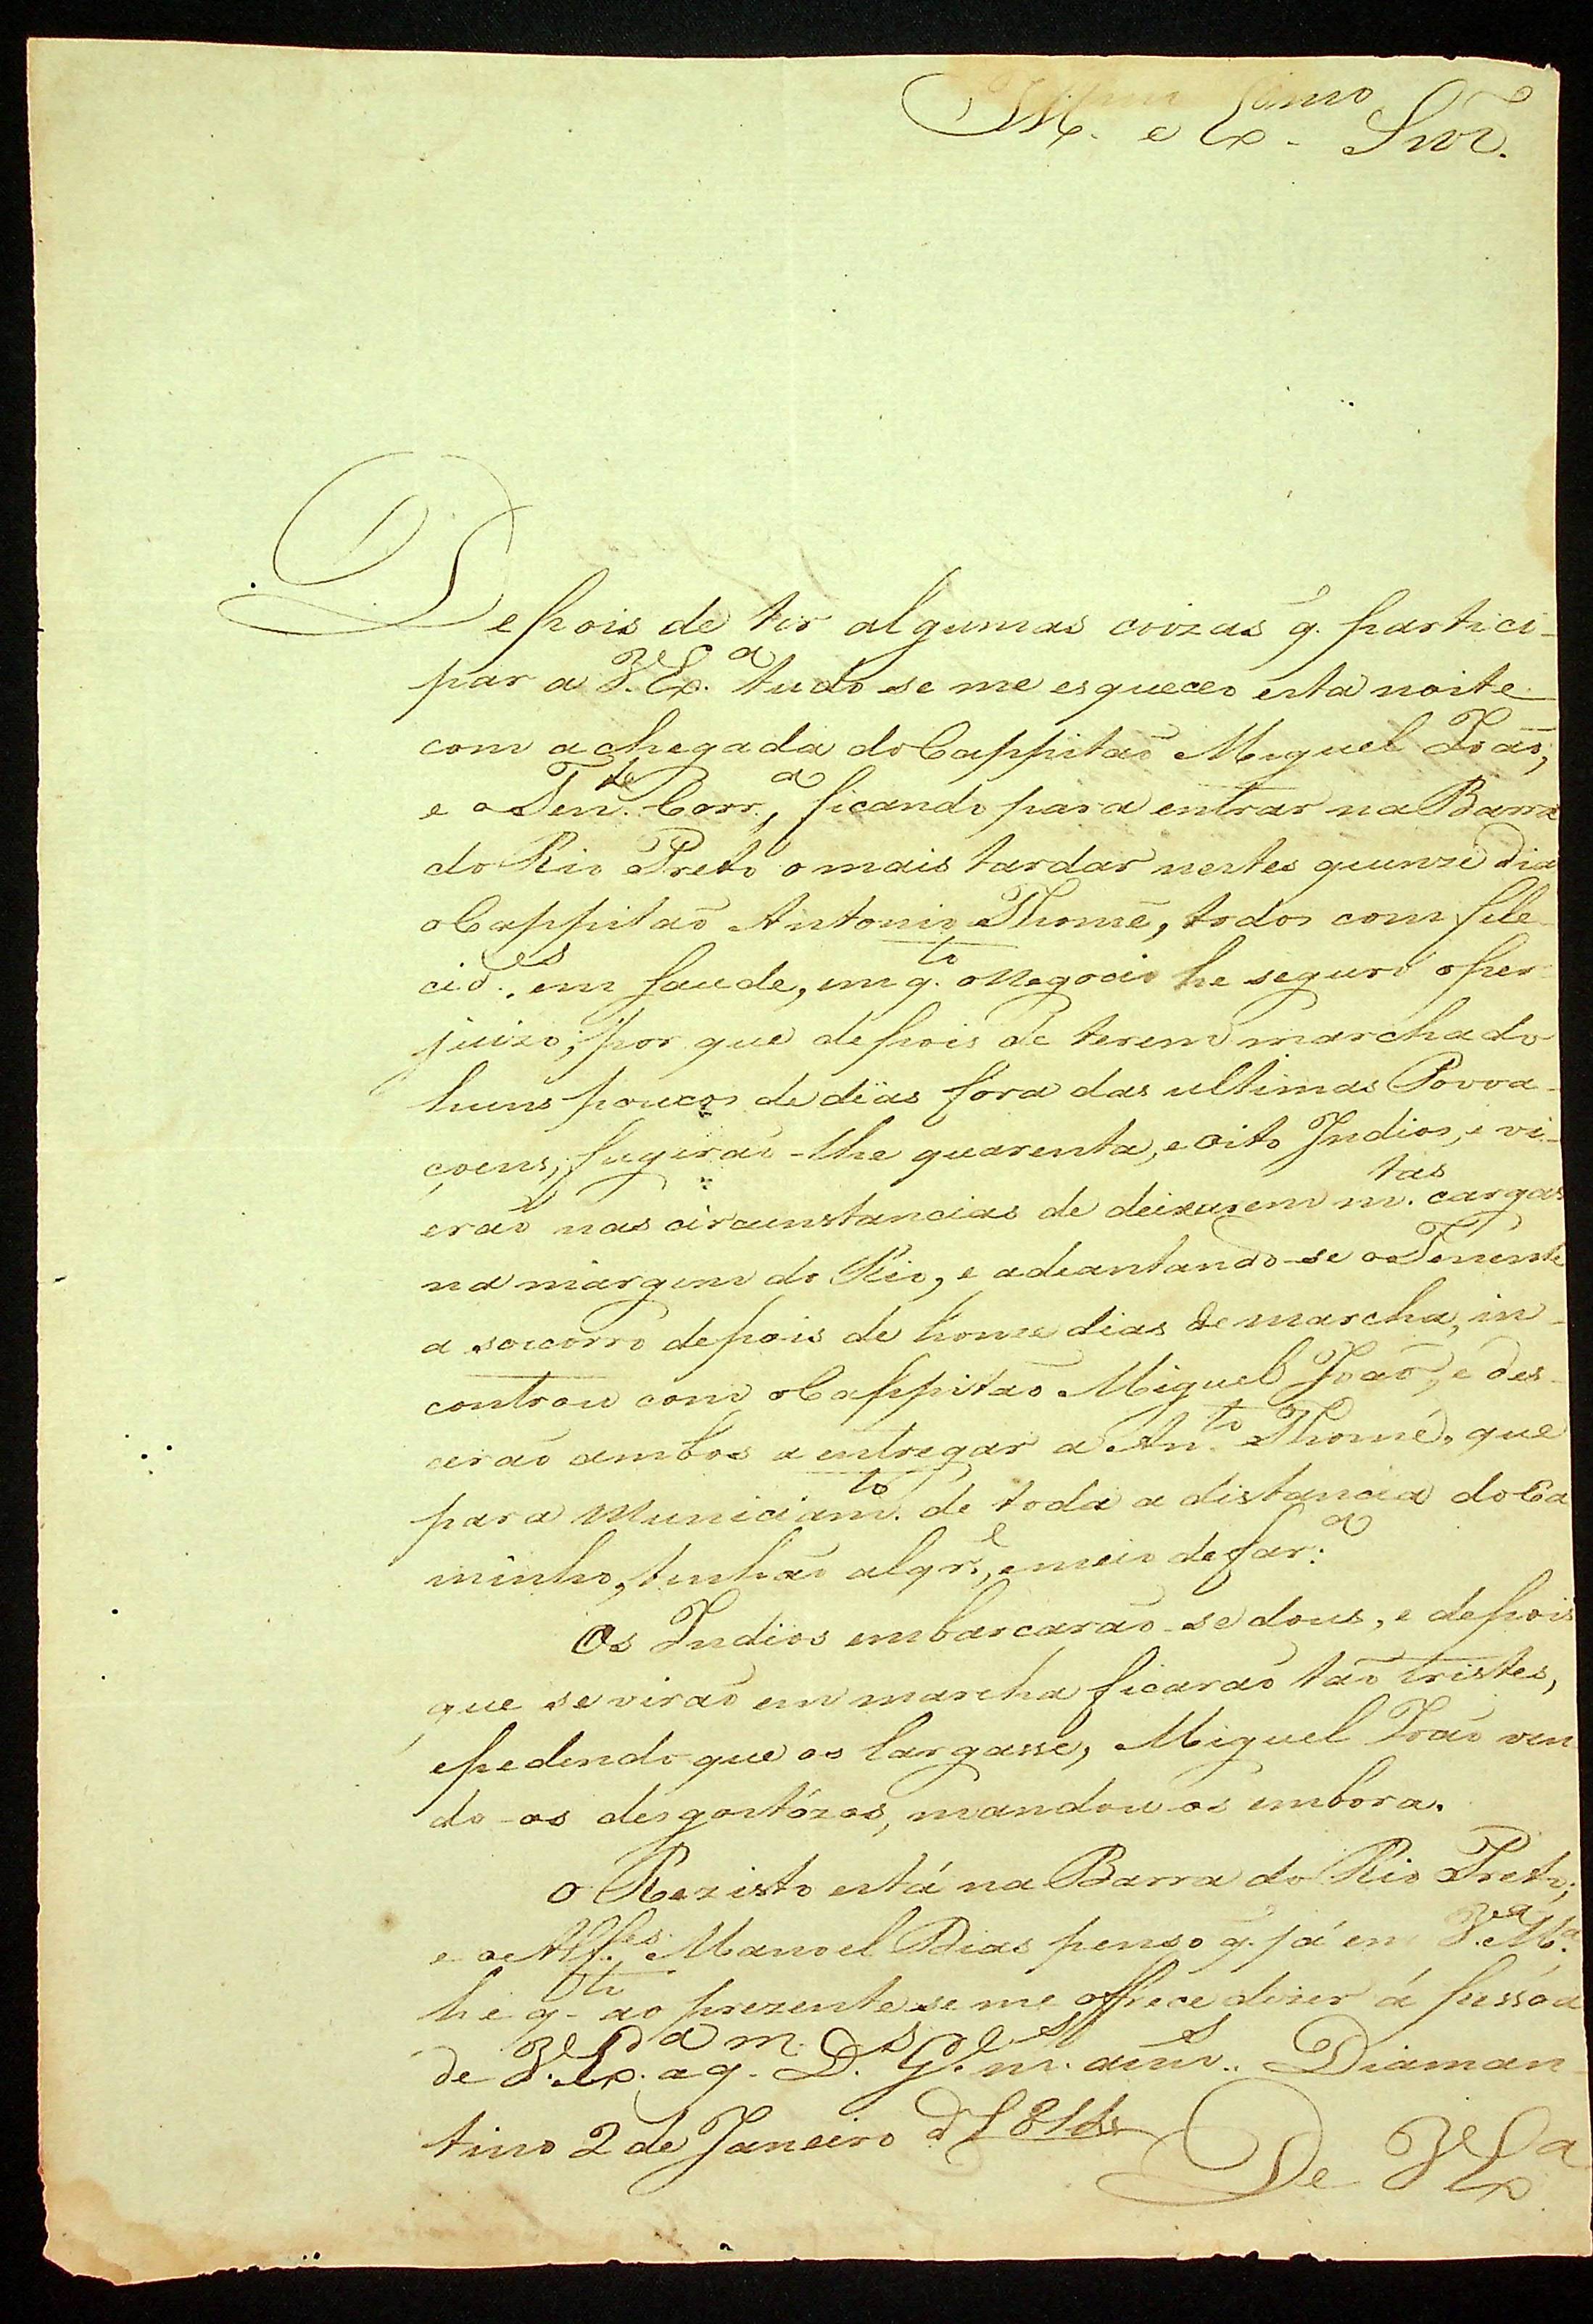 Ill.mo e Ex.mo Snr.
Depois de ter algumas coizas q. partici-
par a V. Ex.a tudo se me esqueceo esta noite
com a chegada do Cappitaõ Miguel Joaõ,
e o Ten.te Corr.a, ficando para entrar na Barra
do Rio Preto o mais tardar nestes quinze dia
o Cappitaõ Antonio Thomé, todos com fele-
cid.es em saude, em q.to o Negocio he seguro o per-
juizo; por que depois de terem marchado
huns poucos de dias fora das ultimas Povoa-
çoens, fugiraõ-lhe quarenta, e oito Indios, e vi-
eraõ nas circunstancias de deixarem m.tas cargas
na margem do Rio, e adeantando-se o Tenente
a socorro depois de honze dias de marcha, in-
controu com o Cappitaõ Miguel Joaõ, e des-
ceraõ ambos a entregar a An.to Thomé, que
para Municiam.to de toda a distancia do Ca
minho, tinhaõ alqr.e, e meio de far.a
Os Indios embarcaraõ-se dous, e depois
que se viraõ em marcha ficaraõ taõ tristes,
e pedindo que os largasse, Miguel Joaõ ven
do-os desgostózos, mandou-os embora.
O Rezisto está na Barra do Rio Preto;
e o Alf.es Manoel Dias penso q. já em V.a M.a
he q.to ao prezente se me offrece dizer á pessoa
de V. Ex.a a q.m D.s G.e m.s ann.s Diaman-
tino 2 de Janeiro d'
De V Ex.a